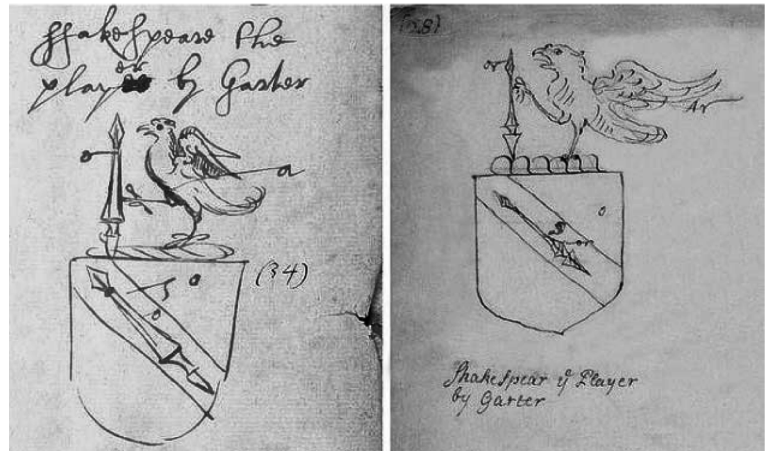 Shakespeare the
player by Garter
o
a
(34)
s
o
o
(28)
or
Ar
o
S
or
Shakespear ye Player
by Garter